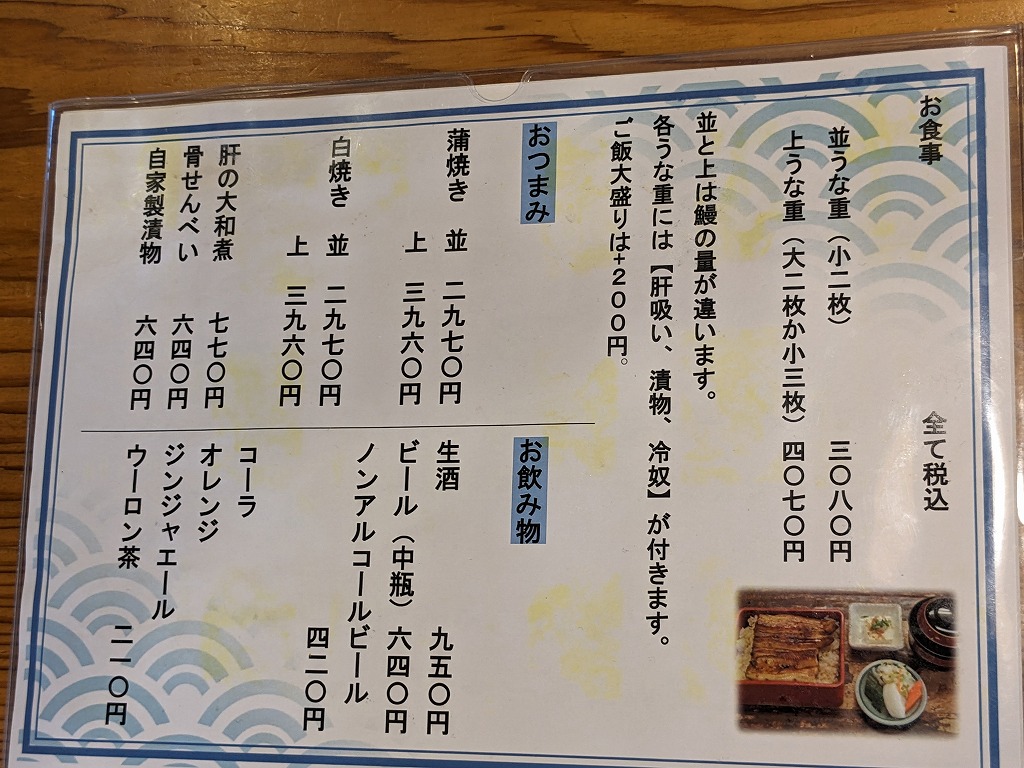 お食事　全て税込
並うな重（小二枚）　三〇八〇円
上うな重（大二枚か小三枚）四〇七〇円
並と上は鰻の量が違います。
各うな重には【肝吸い、漬物、冷奴】が付きます。
ご飯大盛りは+２００円。
おつまみ
蒲焼き　並　二九七〇円
上　三九六〇円
白焼き　並　二九七〇円
上　三九六〇円
肝の大和煮　七七〇円
骨せんべい　六四〇円
自家製漬物　六四〇円
お飲み物
生酒　九五〇円
ビール（中瓶）六四〇円
ノンアルコールビール
四二〇円
コーラ
オレンジ
ジンジャエール
ウーロン茶　二一〇円